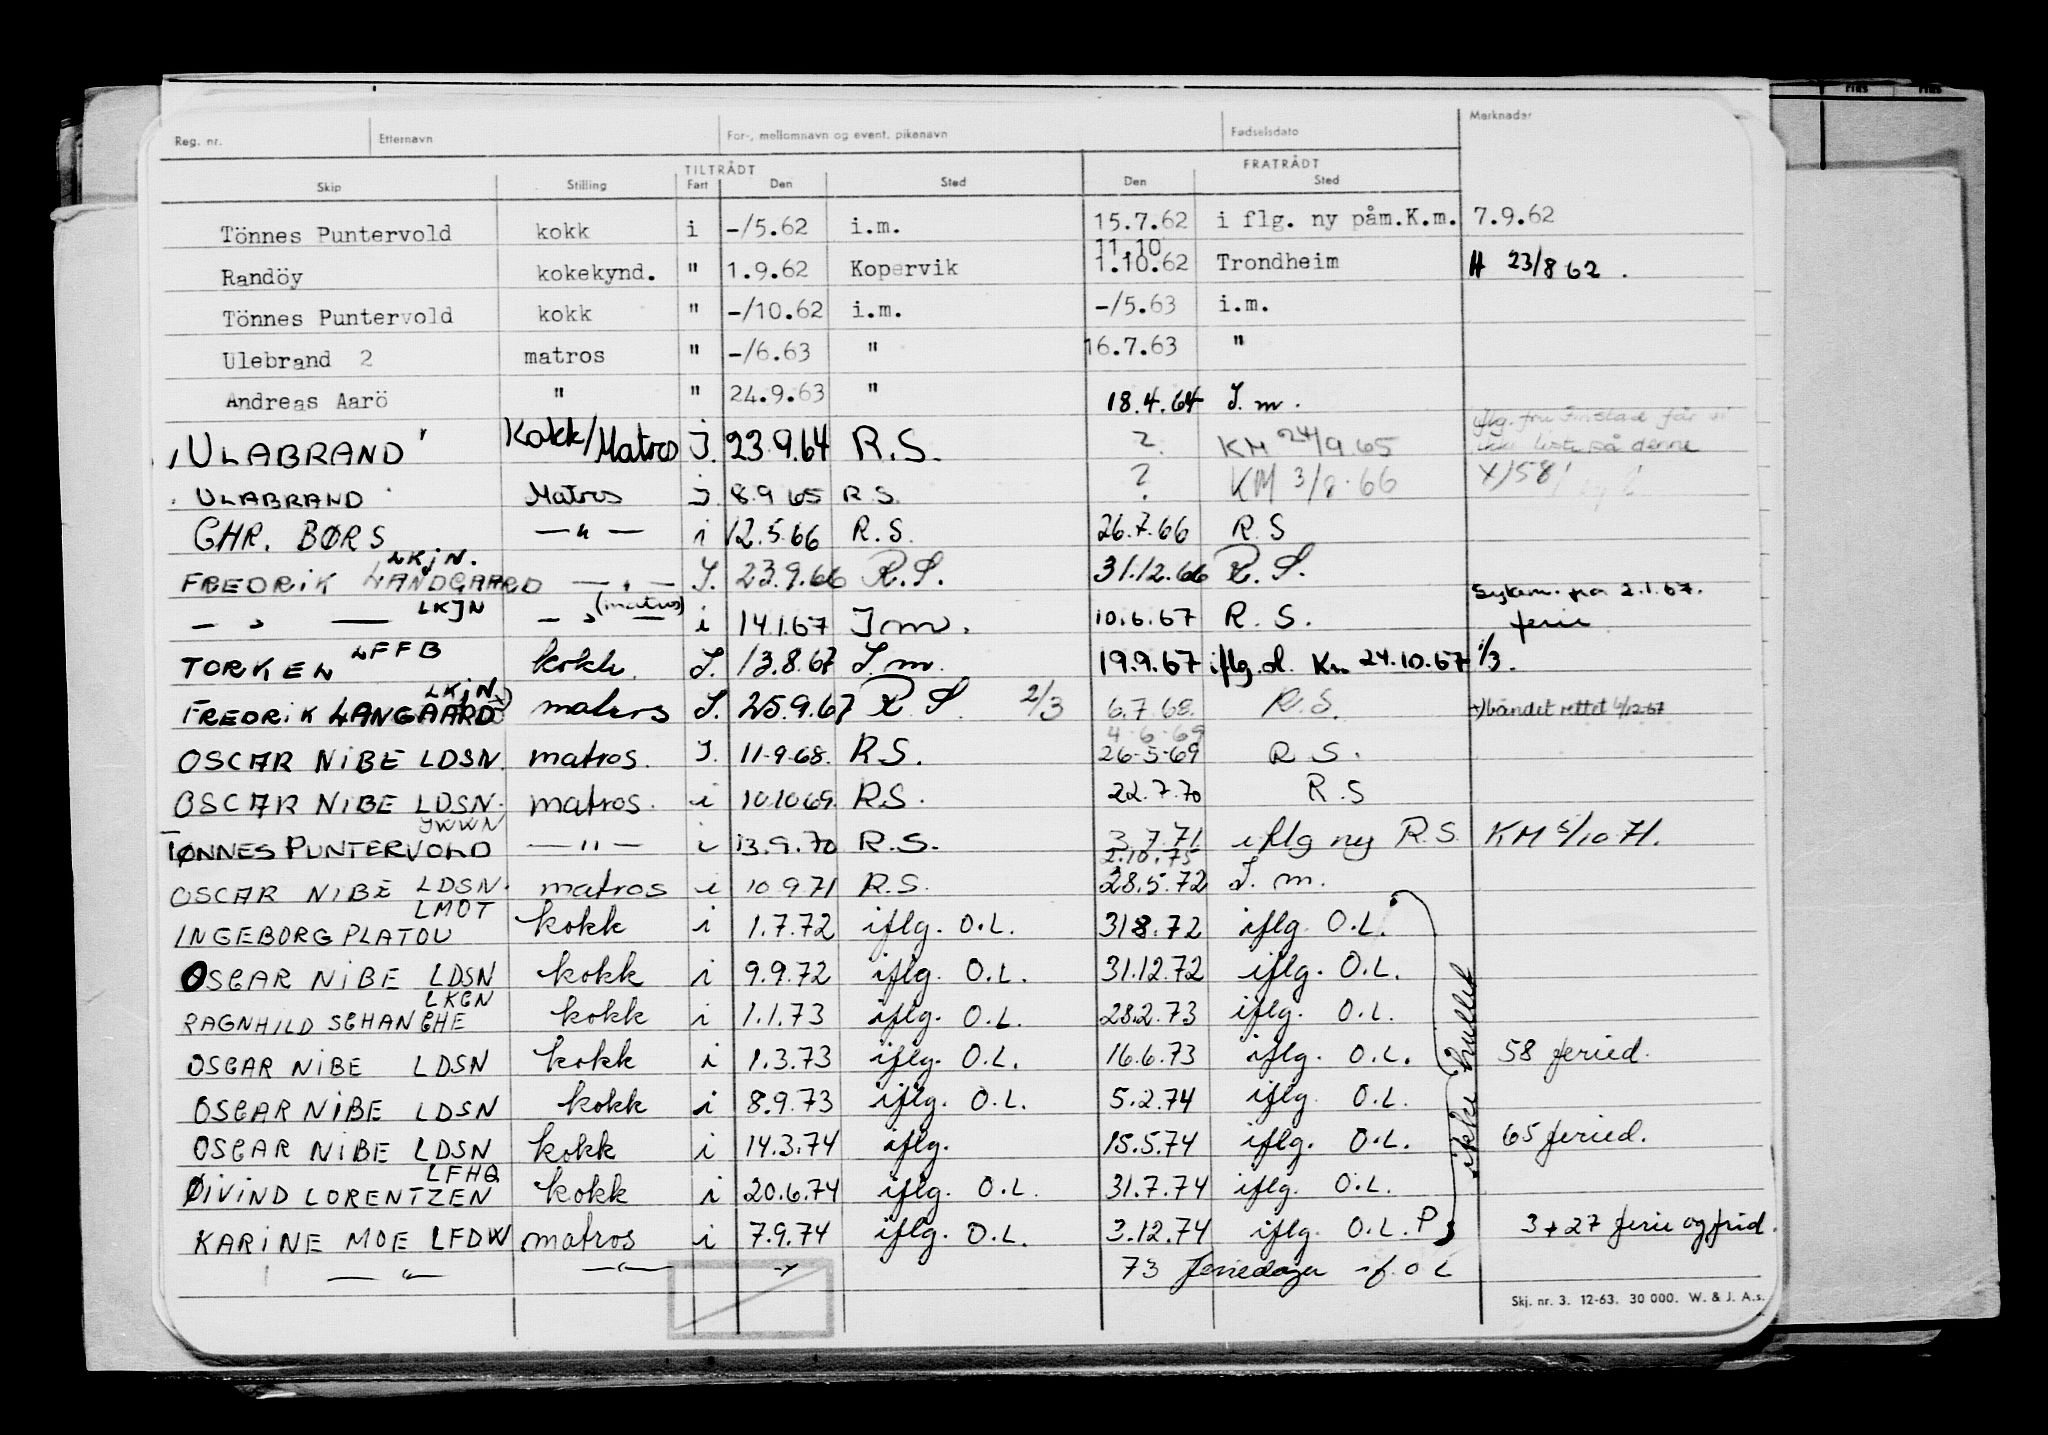 Reg. nr. Etternavn For-, mellomnavn og event. pikenavn Fødselsdato Merknader
TILTRÅDT FRATRÅDT
Skip Stilling Fart Den Sted Den Sted
Tönnes Puntervold kokk i -/5.62 i.m. 15.7.62 i flg. ny påm.K.m. 7.9.62
11.10
Randöy kokekynd. " 1.9.62 Kopervik 1.10.62 Trondheim H 23/8 62.
Tönnes Puntervold kokk " -/10.62 i.m. -/5.63 i.m.
Ulebrand 2 matros " -/6.63 " 16.7.63 "
Andreas Aarö " " 24.9.63 " 18.4.64 I.m.
"ULABRAND" Kokk/Matros I. 23.9.64 R.S. ? KM 24/9.65
"ULABRAND" Matros I 8.9 65 R.S. ? KM 3/8.66 X/58
CHR. BØRS — " — i 12.5.66 R.S. 26.7.66 R.S
LKJN.
FREDRIK LANDGAARD — " — I. 23.9.66 R.S. 31.12.66 R.S. Sykem. fra 2.1.67.
— " — LKJN — " — (matros) i 14.1.67 I m. 10.6.67 R.S. ferie
TORKEL LFFB kokk I. 13.8.67 I.m. 19.9.67 iflg. d. Km 24.10.67 1/3.
LKJN
FREDRIK LANGAARD x) matros I. 25.9.67 R S. 2/3 6.7.68. R.S. x) båndet rettet 6/12-67
4-6-69
OSCAR NIBE LDSN. matros. I. 11-9-68. R.S. 26-5-69 R S.
OSCAR NIBE LDSN. matros. i 10.10.69. R.S. 22.7.70 R.S
TØNNES PUNTERVOLD — " — i 13.9.70 R.S. 3.7.71 iflg ny R.S. KM 5/10 71.
2.10.75
OSCAR NIBE LDSN. matros i 10.9.71 R.S. 28.5.72 I.m.
LMOT
INGEBORG PLATOU kokk i 1.7.72 iflg. O.L. 31.8.72 iflg. O.L.
OSCAR NIBE LDSN kokk i 9.9.72 iflg. O.L. 31.12.72 iflg. O.L.
LKGN
RAGNHILD SCHANCHE kokk i 1.1.73 iflg. O.L. 28.2.73 iflg. O.L.
OSCAR NIBE LDSN kokk i 1.3.73 iflg. O.L. 16.6.73 iflg. O.L. 58 feried.
OSCAR NIBE LDSN kokk i 8.9.73 iflg. O.L. 5.2.74 iflg. O.L.
OSCAR NIBE LDSN kokk i 14.3.74 iflg. 15.5.74 iflg. O.L. 65 feried.
LFHQ
ØIVIND LORENTZEN kokk i 20.6.74 iflg. O.L. 31.7.74 iflg. O.L.
KARINE MOE LFDW matros i 7.9.74 iflg. O.L. 3.12.74 iflg. O.L. P 3 + 27 ferie og frid.
ikke hullet
— " — — " — 73 feriedager if. O L
Skj. nr. 3. 12-63. 30 000. W. & J. A.s.